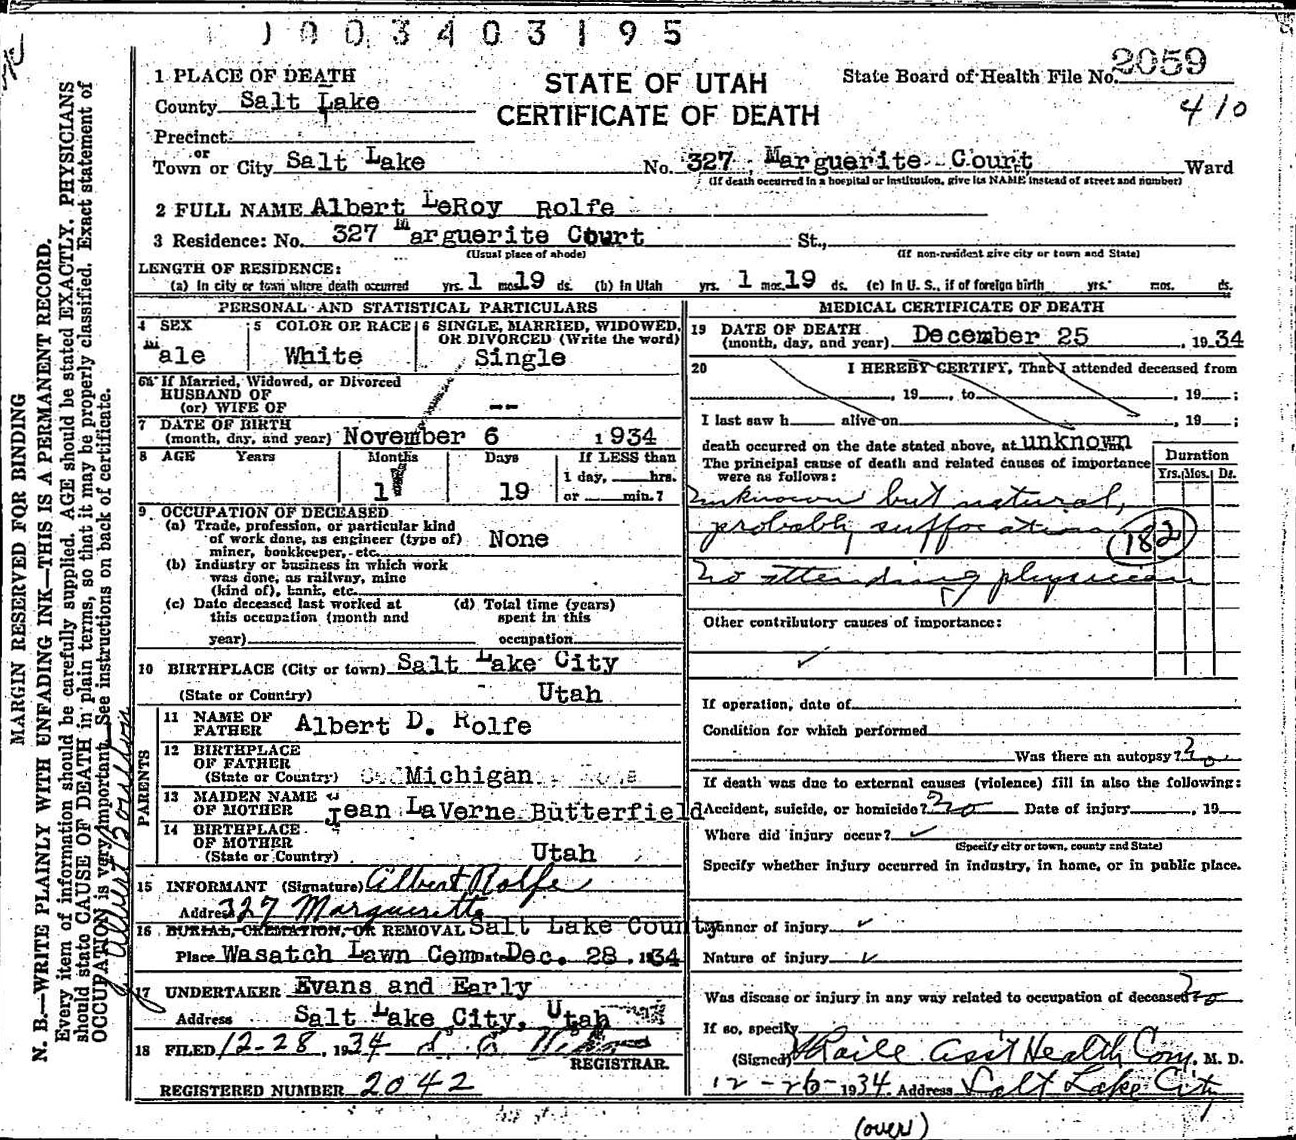 1003403195
STATE OF UTAH
CERTIFICATE OF DEATH
State Board of Health File No. 2059
410
1 PLACE OF DEATH
County Salt Lake
Precinct
or
Town or City Salt Lake No. 327 Marguerite Court Ward
(If death occurred in a hospital or institution, give its NAME instead of street and number)
2 FULL NAME Albert LeRoy Rolfe
3 Residence: No. 327 Marguerite Court St.,
(Usual place of abode) (If non-resident give city or town and State)
LENGTH OF RESIDENCE:
(a) In city or town where death occurred yrs. 1 mos. 19 ds. (b) In Utah yrs. 1 mos. 19 ds. (c) In U. S., if of foreign birth yrs. mos. ds.
PERSONAL AND STATISTICAL PARTICULARS
4 SEX 5 COLOR OR RACE 6 SINGLE, MARRIED, WIDOWED, OR DIVORCED (Write the word)
Male White Single
6a If Married, Widowed, or Divorced
HUSBAND OF
(or) WIFE OF --
7 DATE OF BIRTH
(month, day, and year) November 6 1934
8 AGE Years Months Days If LESS than
1 day, hrs.
1 19 or min.?
9. OCCUPATION OF DECEASED
(a) Trade, profession, or particular kind
of work done, as engineer (type of) None
miner, bookkeeper, etc.
(b) Industry or business in which work
was done, as railway, mine
(kind of), bank, etc.
(c) Date deceased last worked at (d) Total time (years)
this occupation (month and spent in this
year) occupation
10 BIRTHPLACE (City or town) Salt Lake City
(State or Country) Utah
PARENTS
11 NAME OF
FATHER Albert D. Rolfe
12 BIRTHPLACE
OF FATHER
(State or Country) Michigan
13 MAIDEN NAME
OF MOTHER Jean LaVerne Butterfield
14 BIRTHPLACE
OF MOTHER
(State or Country) Utah
15 INFORMANT (Signature) Albert Rolfe
Address 327 Marguerette
16 BURIAL, CREMATION, OR REMOVAL Salt Lake County
Place Wasatch Lawn Cem Date Dec. 28, 1934
17 UNDERTAKER Evans and Early
Address Salt Lake City, Utah
18 FILED 12-28, 1934
REGISTRAR.
REGISTERED NUMBER 2042
MEDICAL CERTIFICATE OF DEATH
19 DATE OF DEATH
(month, day, and year) December 25, 1934
20 I HEREBY CERTIFY, That I attended deceased from
, 19 , to , 19 ;
I last saw h alive on , 19 ;
death occurred on the date stated above, at unknown
The principal cause of death and related causes of importance
were as follows:
Duration
Yrs. Mos. Ds.
Unknown but natural,
probably suffocation
182
No attending physician
Other contributory causes of importance:
If operation, date of
Condition for which performed
Was there an autopsy? No
If death was due to external causes (violence) fill in also the following:
Accident, suicide, or homicide? No Date of injury , 19
Where did injury occur?
(Specify city or town, county and State)
Specify whether injury occurred in industry, in home, or in public place.
Manner of injury
Nature of injury
Was disease or injury in any way related to occupation of deceased No
If so, specify
(Signed) Raile Asst Health Com, M. D.
12-26-1934. Address Salt Lake City
(over)
MARGIN RESERVED FOR BINDING
N. B.—WRITE PLAINLY WITH UNFADING INK—THIS IS A PERMANENT RECORD.
Every item of information should be carefully supplied. AGE should be stated EXACTLY. PHYSICIANS
should state CAUSE OF DEATH in plain terms, so that it may be properly classified. Exact statement of
OCCUPATION is very important. See instructions on back of certificate.